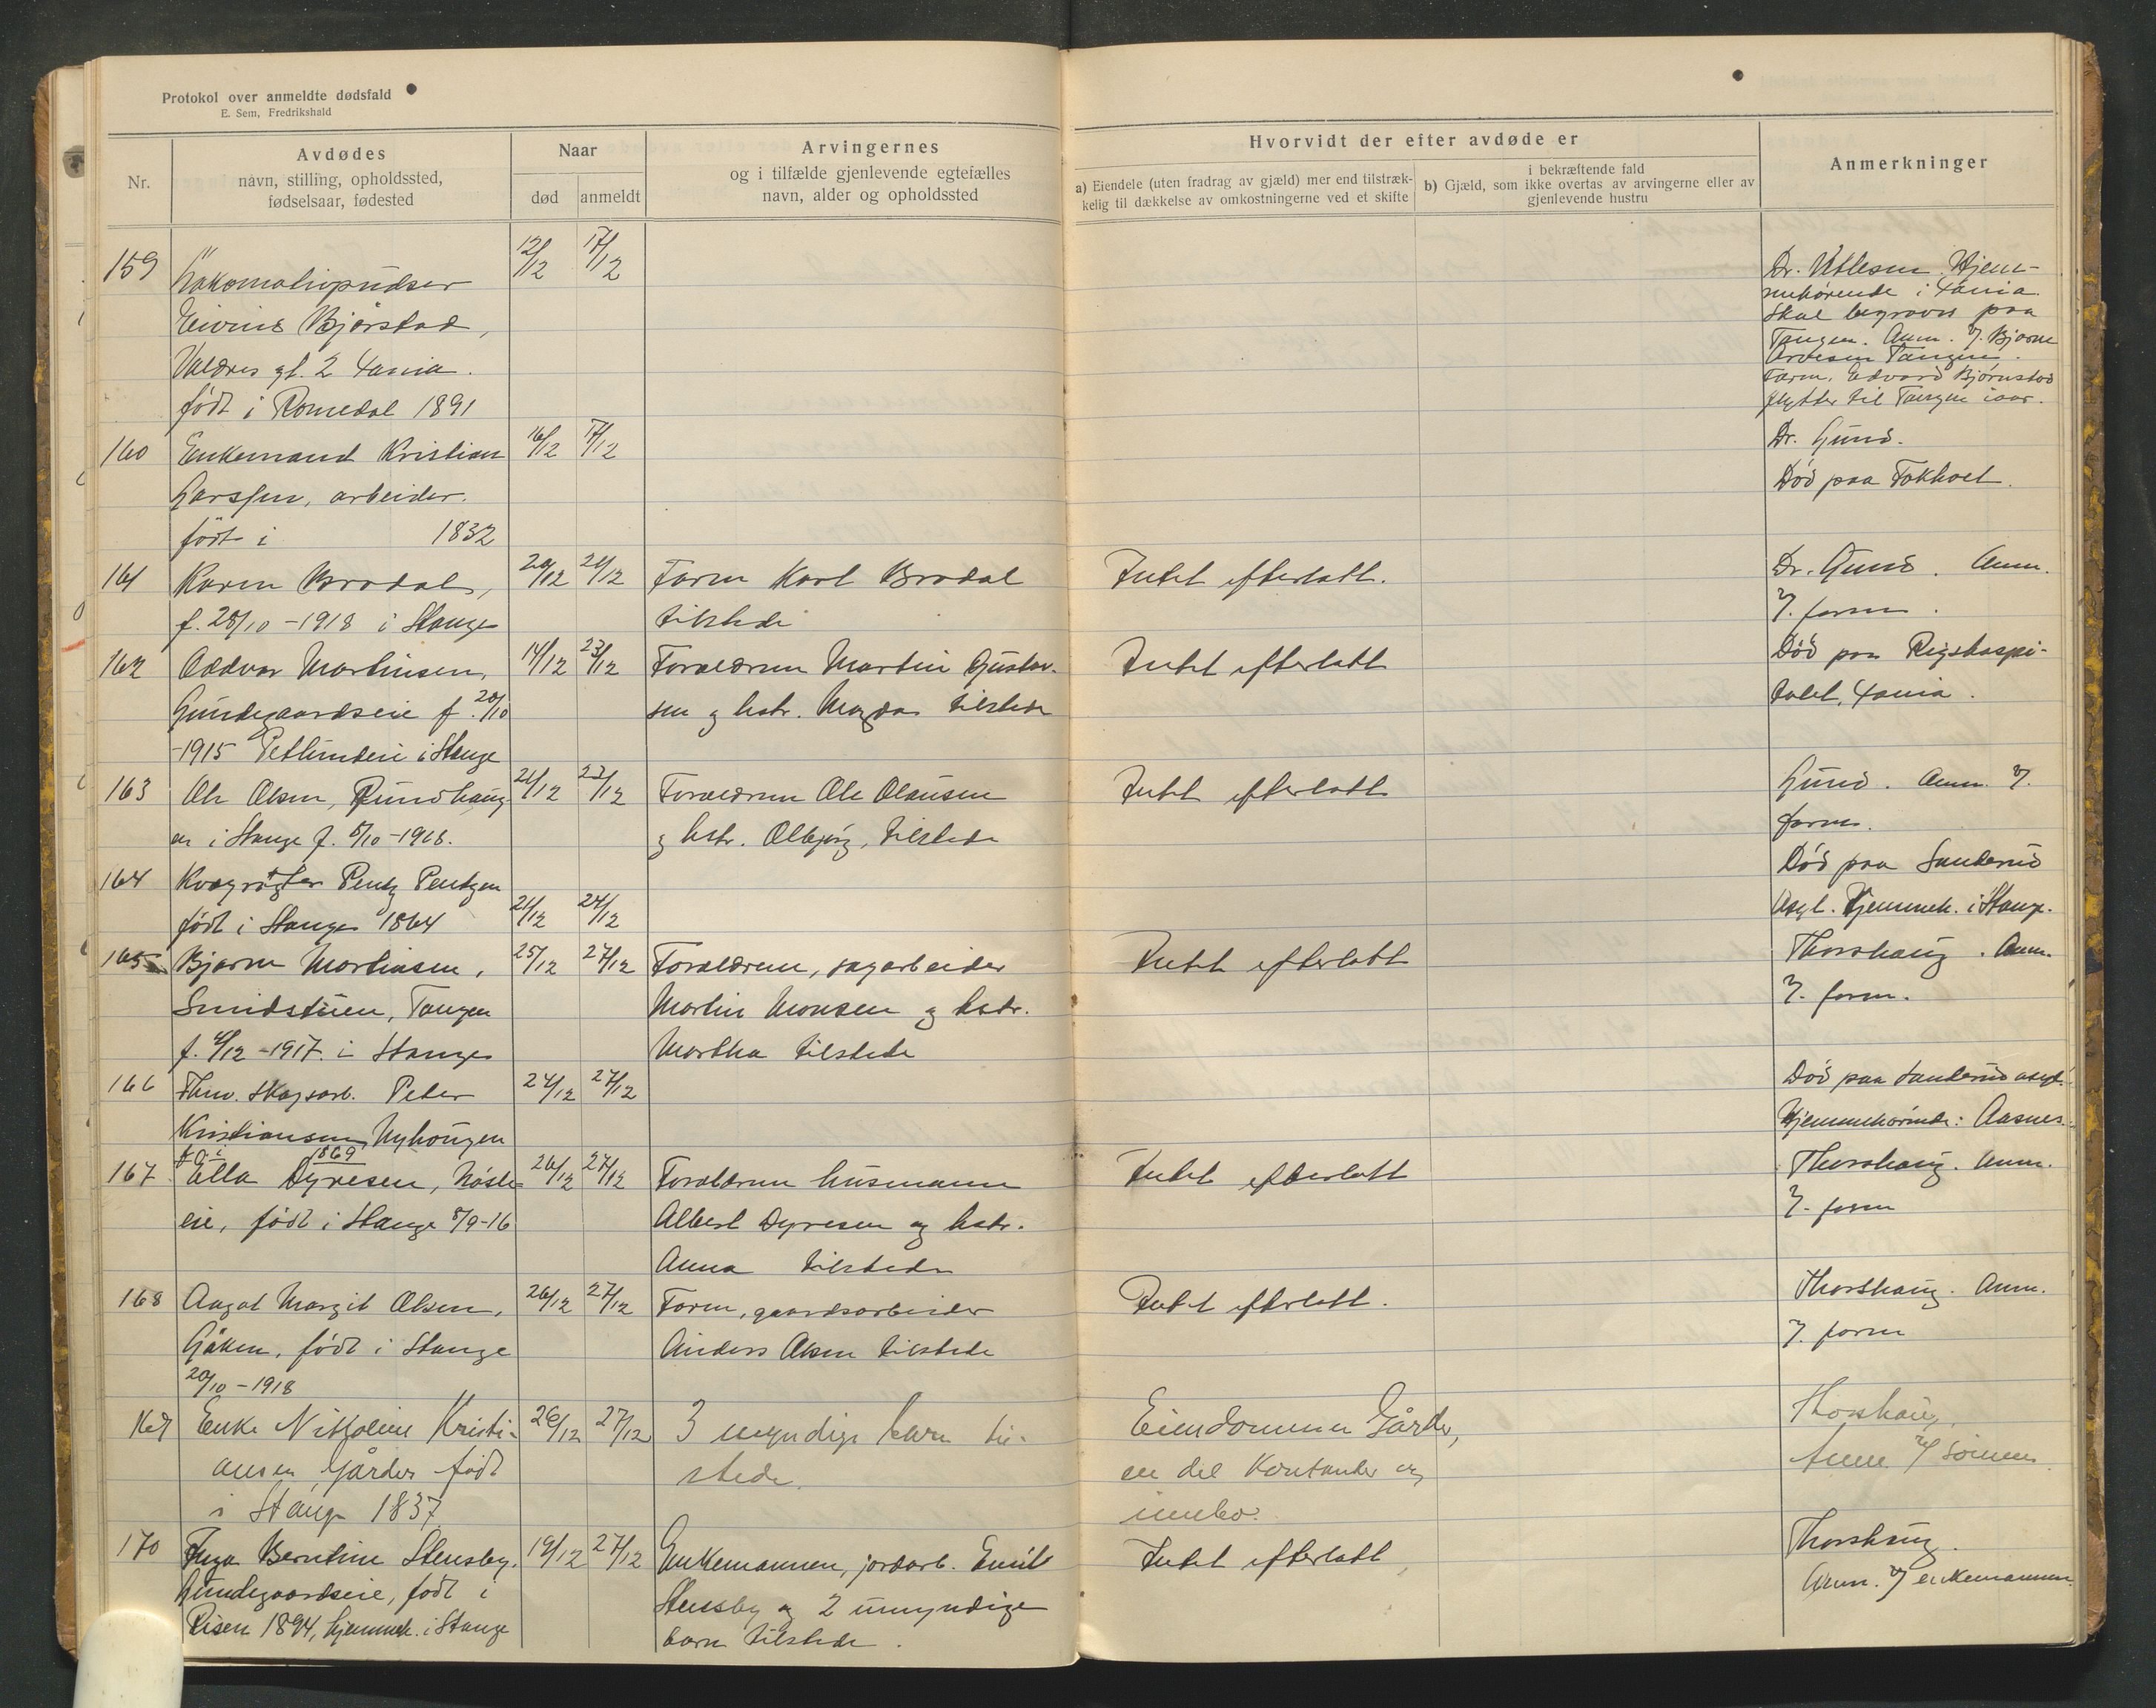 Protokol over anmeldte dødsfald
E. Sem, Fredrikshald
Nr.
Avdødes
navn, stilling, opholdssted,
fødselsaar, fødested
Naar
død
anmeldt
Arvingernes
og i tilfælde gjenlevende egtefælles
navn, alder og opholdssted
Hvorvidt der efter avdøde er
a) Eiendele (uten fradrag av gjæld) mer end tilstræk-
kelig til dækkelse av omkostningerne ved et skifte
i bekræftende fald
b) Gjæld, som ikke overtas av arvingerne eller av
gjenlevende hustru
Anmerkninger
159
Lokomotivpudser
Eivind Bjørstad,
Valdres gt. 2 Xania.
født i Romedal 1891
12/12 17/12
Dr. Hjem-
mehørende i Xania.
Skal begraves paa
Tangen. Anm. Bjarne
Arvesen Tangen.
Farm. Edvard Bjørnstad
flytter til Tangen iaar.
160
Enkemand Kristian
Larssen, arbeider.
født i 1832
16/12 17/12
Dr. Lund.
Død paa Fokhoel.
161
Karen Brodal,
f. 28/10 - 1918 i Stange
20/12 21/12
Faren Karl Brodal
tilstede
Intet efterlatt.
Dr. Lund. Anm.
faren.
162
Oddvar Martinsen,
Lundegaardseie f. 20/10
-1915 i Stange
14/12 23/12
Forældrene Martin Gustav-
sen og hstr. Magda tilstede
Intet efterlatt
Død paa Rigshospi-
talet, Xania.
163
Ole Olsen, Rundhaug-
en i Stange f. 8/10 - 1918.
21/12 23/12
Forældrene Ole Olausen
og hstr. Olbjørg, tilstede
Intet efterlatt
Lund. Anm.
faren.
164
Kvægrøgter Pentz Pentzen
født i Stange 1864
21/12 24/12
Død paa Sanderud
Asyl. Hjemmeh. i Stange.
165
Bjarne Martinsen,
Smidstuen, Tangen
f. /12 - 1917. i Stange
25/12 27/12
Forældrene, sagarbeider
Martin Monsen og hstr.
Martha tilstede
Intet efterlatt
Thorshaug. Anm.
faren.
166
Skogsarb. Peter
Kristiansen Nyhaugen
1869
24/12 27/12
Død paa Sanderud asyl.
Hjemmehørende: Aasnes.
167
Ella Dyresen, Nøsle-
eie, født i Stange 8/9-16
26/12 27/12
Forældrene husmann
Albert Dyresen og hstr.
Anna tilstede
Intet efterlatt
Thorshaug. Anm.
faren
168
Aagot Margit Olsen,
født i Stange
20/10 - 1918
26/12 27/12
Faren, gaardsarbeider
Anders Olsen tilstede
Intet efterlatt.
Thorshaug. Anm.
faren
169
Enke Nikoline Kristi-
ansen Gårder født
i Stange 1837.
26/12 27/12
3 myndige barn til-
stede.
Eiendommen Gårder,
en del kontanter og
innbo.
Thorshaug.
Anm. sønnen
170
Inga Berntine Stensby,
Lundegaardseie, født i
Risen 1894, hjemmeh. i Stange
19/12 27/12
Enkemannen, jordarb. Emil
Stensby og 2 umyndige
barn tilstede.
Intet efterlatt,
Thorshaug.
Anm. enkemannen.